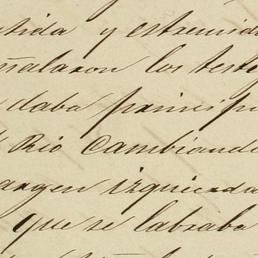 tida y estremida
ñalaron los testi
daba principi
Rio Cambiando
argen izquierda
que se labraba